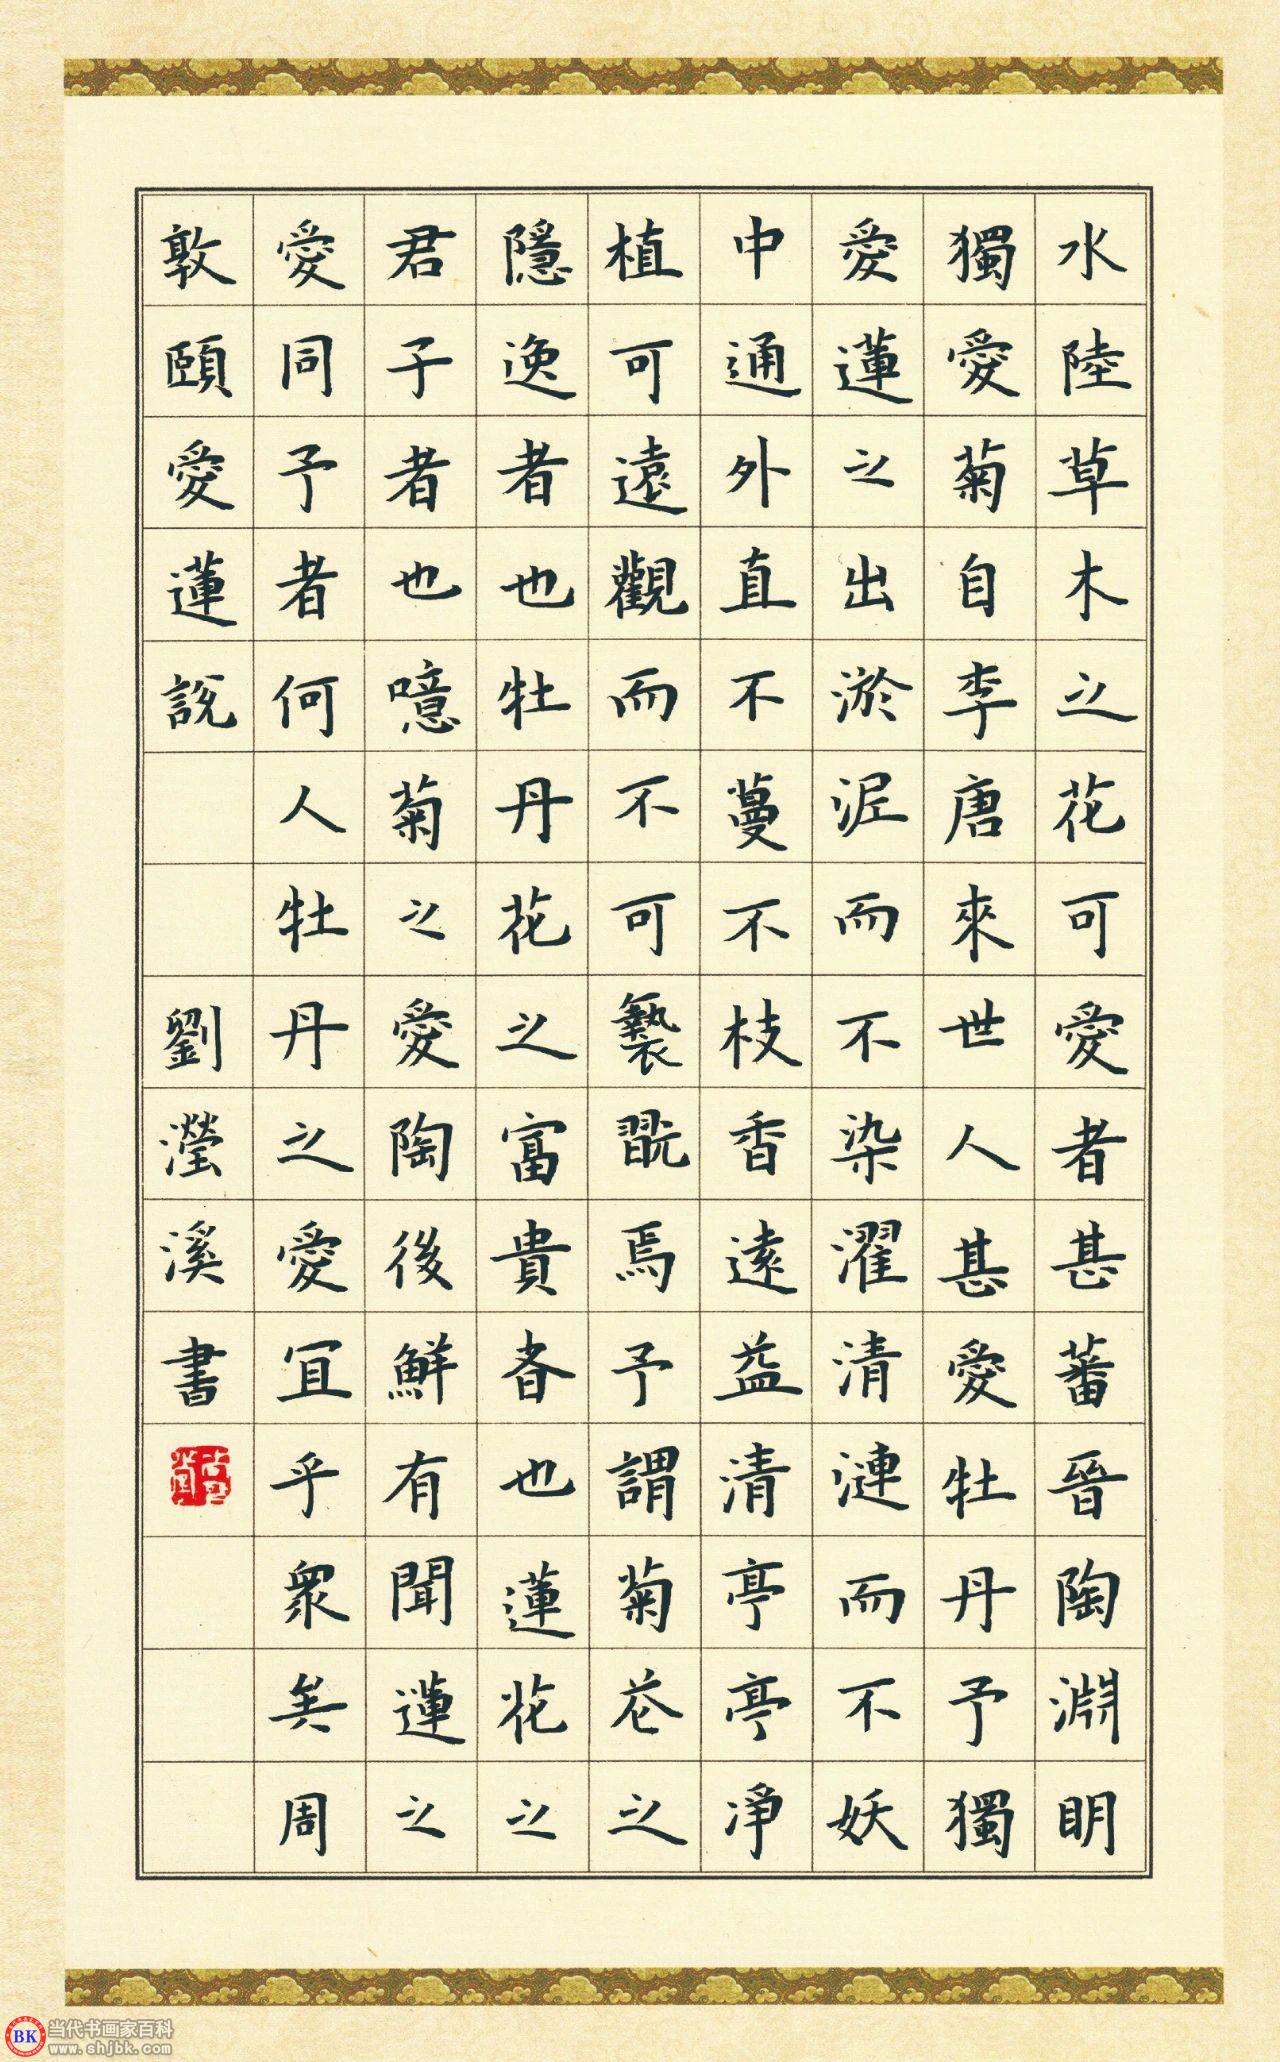 水陸草木之花可愛者甚蕃晉陶淵明
獨愛菊自李唐來世人甚愛牡丹予獨
愛蓮之出淤泥而不染濯清漣而不妖
中通外直不蔓不枝香遠益清亭亭淨
植可遠觀而不可褻翫焉予謂菊花之
隱逸者也牡丹花之富貴者也蓮花之
君子者也噫菊之愛陶後鮮有聞蓮之
愛同予者何人牡丹之愛宜乎衆矣周
敦頤愛蓮說 劉瀅溪書
BK 当代书画家百科
www.shjbk.com